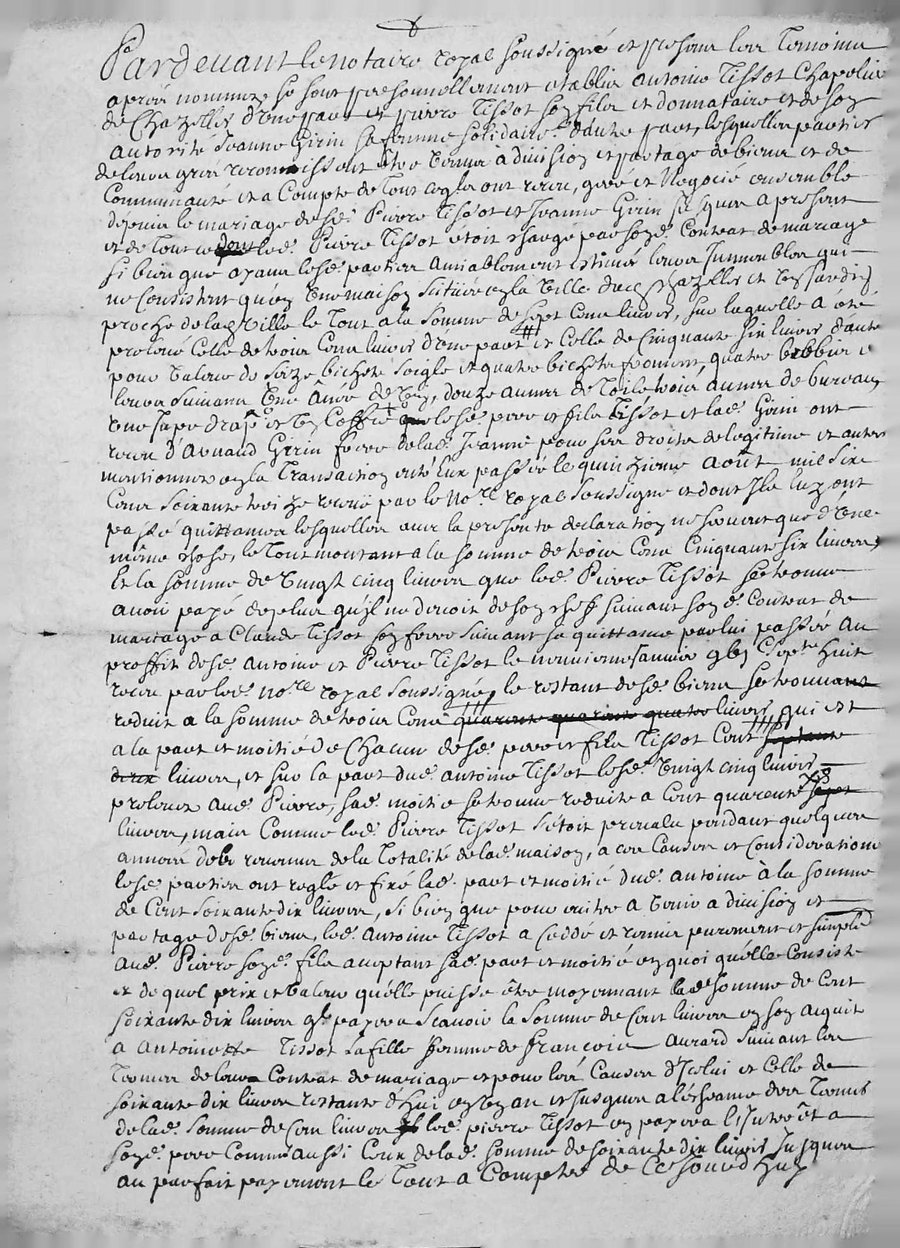 Pardevant le notaire royal soussigné et presans les temoins
apres nommez se sont personnellement etablis Antoine Tissot Chapelier
de Chazelles d'une part et pierre Tissot son fils et donnataire et de son
autorité Jeanne Girin sa femme solidaire d'autre part, lesquelles parties
de leurs gréz reconnissent être venus à division et partage de biens et de
Communauté et a Compte de Tout ce qu'ils ont receu, geré et Negocié ensemble
depuis le mariage desd. Pierre Tissot et Jeanne Girin jusques a present
et de Tout ce dont led. Pierre Tissot etoit chargé par son d. Contrat de mariage
si bien que ayans lesd. parties amiablement estimés leurs Immeubles qui
ne Consistent qu'en Une maison scituée en la Ville dud. Chazelles et Un jardin
proche de lad. Ville le Tout a la somme de sept Cens livres, sur laquelle a eté
prelevé Celle de trois Cens livres d'une part et Celle de Cinquante six livres d'autre
pour Valeur de seize bichets seigle et quatre bichets froment, quatre brebis et
leurs suivans Une Anée de Vin, douze aunes de Toile trois aunes de bureau,
une jupe drap et Un Coffre que lesd. pere et fils Tissot et lad. Girin ont
receu d'Arnaud Girin frere de lad. Jeanne pour ses droits de legitime et autres
mentionnes en la Transaction entr'Eux passée le quinzieme Août mil six
Cens soixante treize receue par le No.re royal soussigné et dont Ils luy ont
passé quittances lesquelles avec la presente declaration ne servent que d'Une
même chose, le Tout montant a la somme de trois Cens Cinquante six livres,
Et la somme de Vingt cinq livres que led. Pierre Tissot se trouve
avoir payé de plus qu'il ne devoit de son chef suivant son d. Contrat de
mariage a Claude Tissot son frere suivant sa quittance par lui passée au
proffit desd. Antoine et Pierre Tissot le neuvieme janvier
receue par led. No.re royal soussigné, le restant desd. biens se trouvant
reduit a la somme de trois Cens quarante quatre livres qui est
a la part et moitié de Chacun desd. pere et fils Tissot Cent septante
deux livres, et sur la part dud. Antoine Tissot lesd. Vingt cinq livres
prelevés aud. Pierre, sad. moitié se trouve reduite a Cent quarente sept
livres, mais Comme led. Pierre Tissot s'etoit prevalu pendant quelques
années des revenus de la Totalité de lad. maison, a ces Causes et Considerations
lesd. parties ont reglé et fixé lad. part et moitié dud. Antoine à la somme
de Cent soixante dix livres, si bien que pour eviter a Venir a division et
partage desd. biens, led. Antoine Tissot a Ceddé et remis purement et simple
aud. Pierre son d. fils acceptant sad. part et moitié en quoi qu'elle Consiste
et de quel prix et Valeur qu'elle puisse être moyennant lad. somme de Cent
soixante dix livres q'il payera sçavoir la somme de Cent livres en son aquit
a Antoinette Tissot sa fille femme de françois Aurard suivant les
Termes de leur Contrat de mariage et pour les Causes d'Icelui et Celle de
soixante dix livres restante d'hui en Un an et jusques a l'écheance des Termes
de lad. somme de Cens livres led. pierre Tissot en payera l'Interêt a
son d. pere Comme aussi Ceux de lad. somme de soixante dix livres Jusques
au parfait payement le Tout a Compter de Cejourd'huy